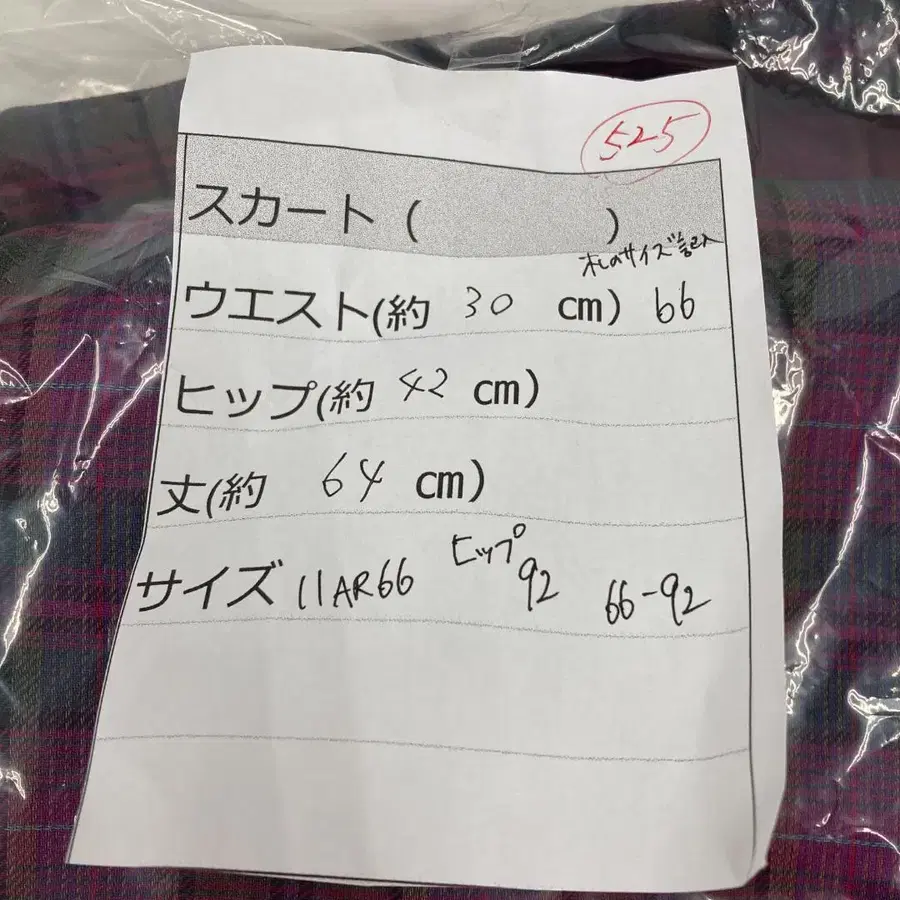 525
スカート (            )
札のサイズ記入
ウエスト(約 30 cm) 66
ヒップ(約 42 cm)
丈(約 64 cm)
サイズ 11AR66 ヒップ92 66-92